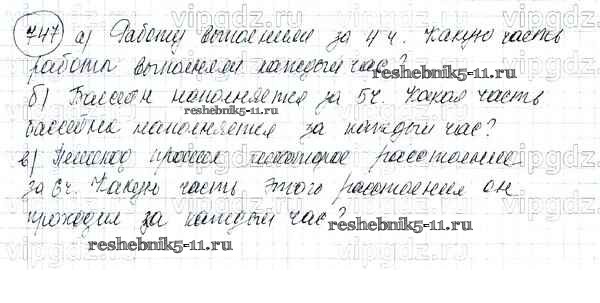 747 а) Работу выполнили за 4 ч. Какую часть
работы выполняли каждый час?
б) Бассейн наполняется за 5ч. Какая часть
бассейна наполняется за каждый час?
в) Пешеход прошел некоторое расстояние
за 6ч. Какую часть этого расстояния он
проходил за каждый час?
reshebnik5-11.ru
reshebnik5-11.ru
reshebnik5-11.ru
reshebnik5-11.ru
vipgdz.ru